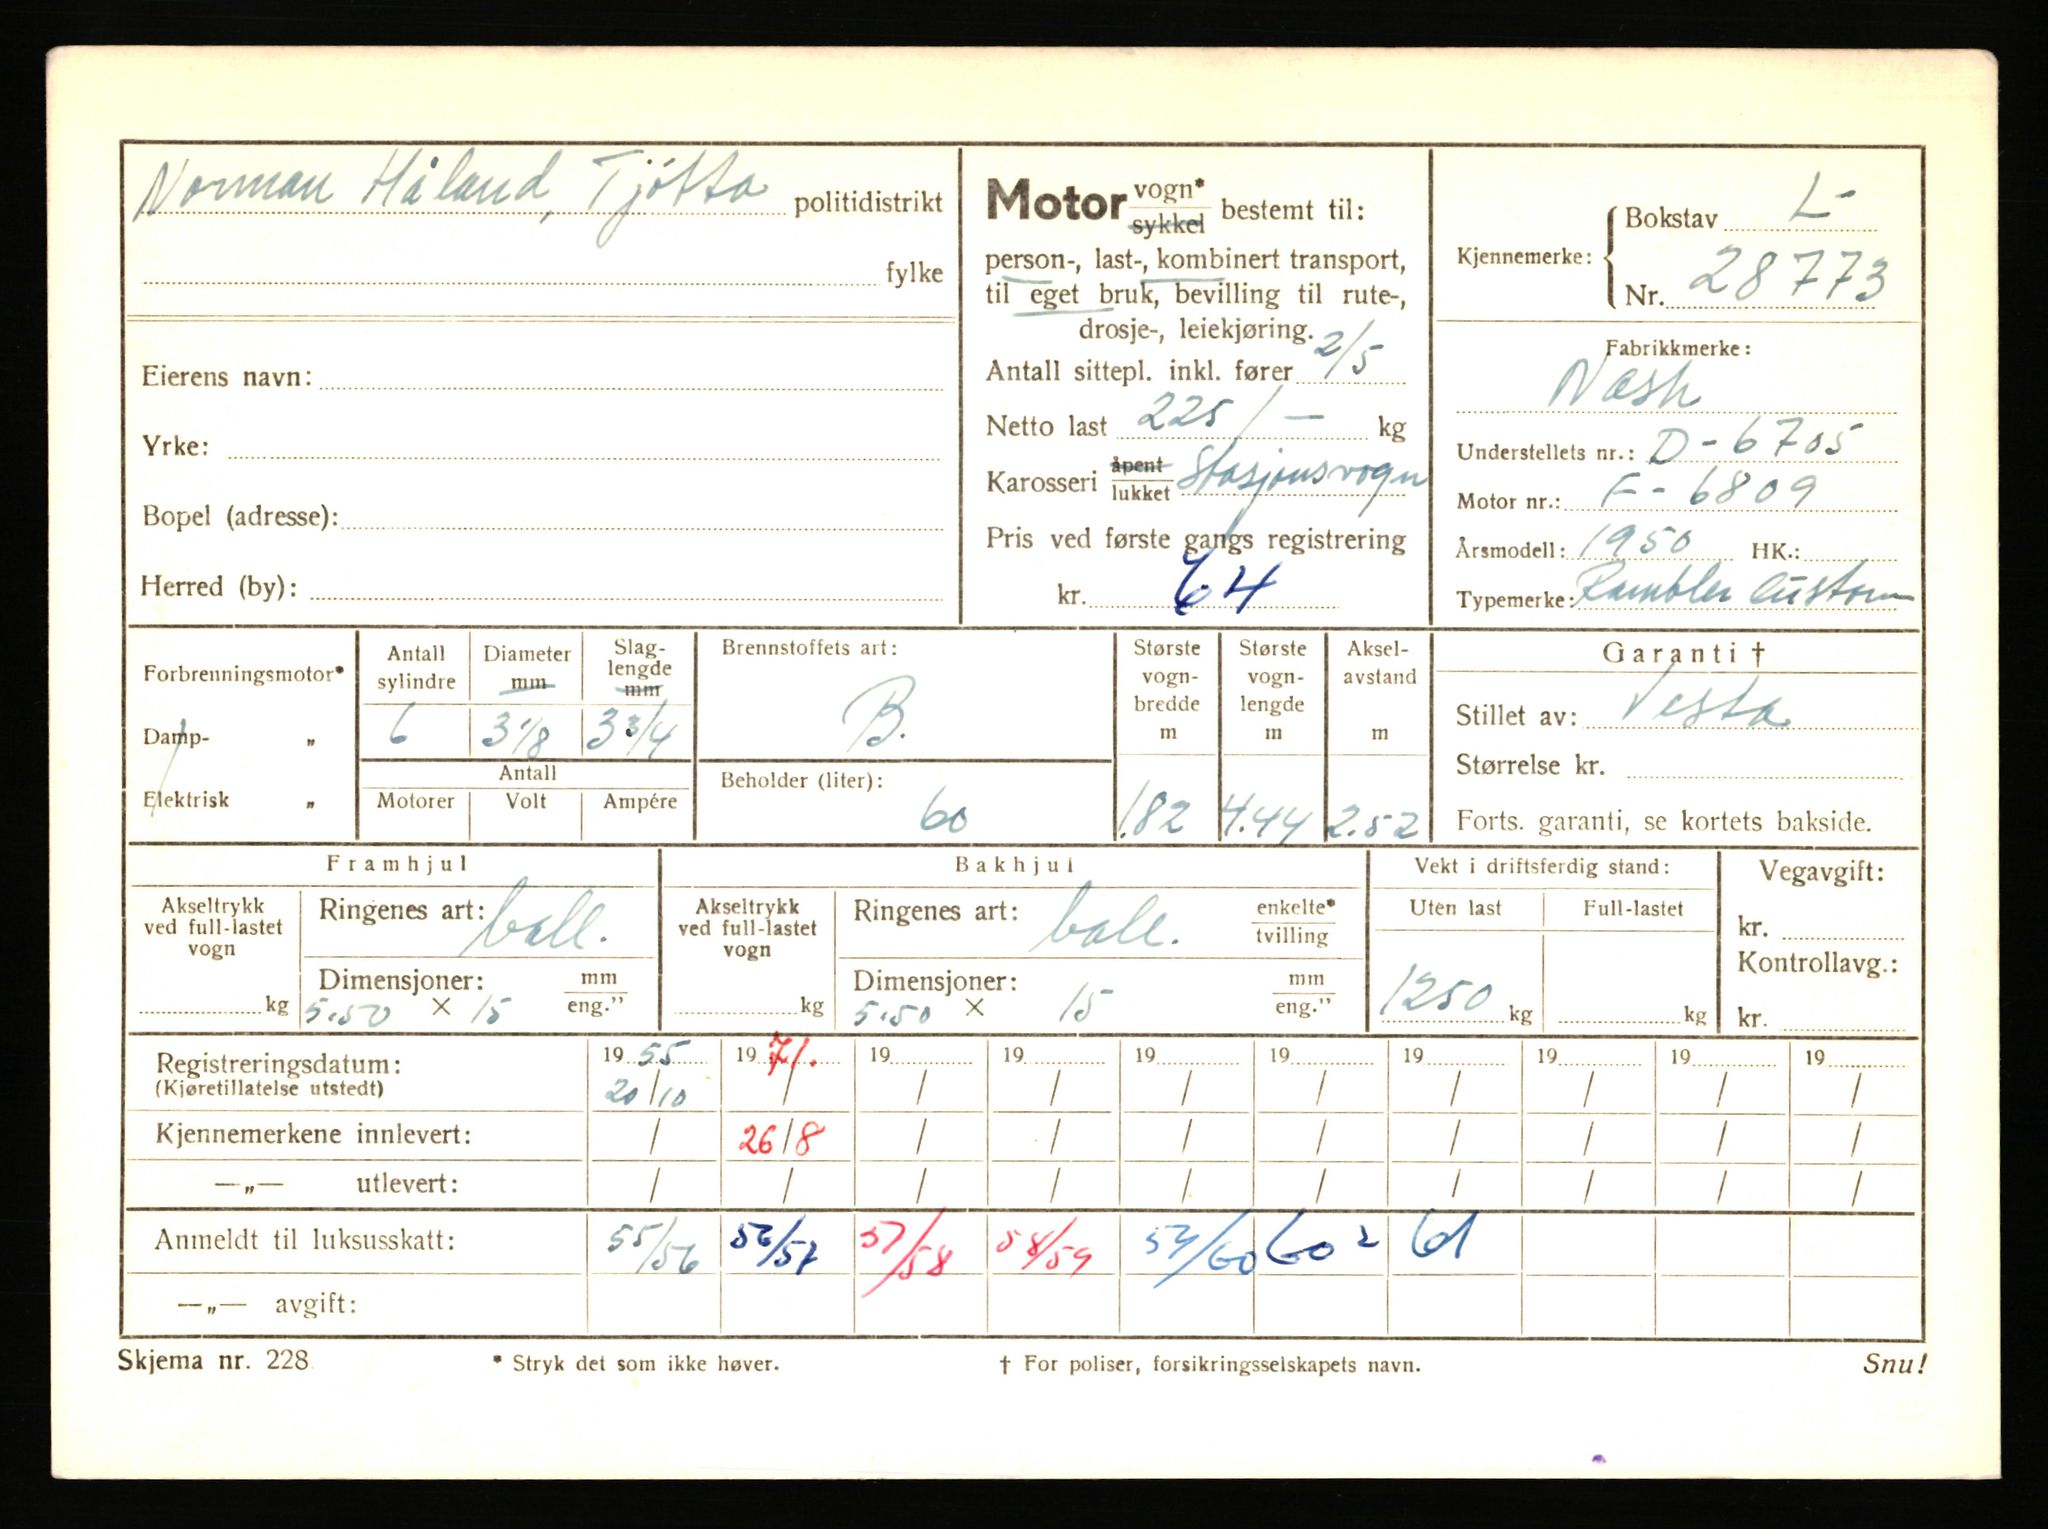 Norman Håland, Tjøtta politidistrikt
fylke
Eierens navn:
Yrke:
Bopel (adresse):
Herred (by):
Motor vogn* sykkel bestemt til:
person-, last-, kombinert transport,
til eget bruk, bevilling til rute-,
drosje-, leiekjøring.
Antall sittepl. inkl. fører 2/5
Netto last 225/- kg
Karosseri åpent lukket Stasjonsvogn
Pris ved første gangs registrering
kr. 64
Kjennemerke: Bokstav L-
Nr. 28773
Fabrikkmerke:
Nash
Understellets nr.: D-6705
Motor nr.: F-6809
Årsmodell: 1950 HK.:
Typemerke: Rambler Custom
Forbrenningsmotor*
Damp- "
Elektrisk "
Antall sylindre Diameter mm Slag-lengde mm
6 3 1/8 3 3/4
Antall
Motorer Volt Ampére
Brennstoffets art:
B.
Beholder (liter):
60
Største vogn-bredde m
1.82
Største vogn-lengde m
4.44
Aksel-avstand m
2.52
Garanti †
Stillet av: Vesta
Størrelse kr.
Forts. garanti, se kortets bakside.
Framhjul
Akseltrykk ved full-lastet vogn
kg
Ringenes art: ball.
Dimensjoner: mm eng."
5.50 × 15
Bakhjul
Akseltrykk ved full-lastet vogn
kg
Ringenes art: ball. enkelte* tvilling
Dimensjoner: mm eng."
5.50 × 15
Vekt i driftsferdig stand:
Uten last Full-lastet
1250 kg kg
Vegavgift:
kr.
Kontrollavg.:
kr.
Registreringsdatum: 19 55 19 71. 19 19 19 19 19 19 19 19
(Kjøretillatelse utstedt) 20/10 / / / / / / / / /
Kjennemerkene innlevert: / 26/8 / / / / / / / /
—„— utlevert: / / / / / / / / / /
Anmeldt til luksusskatt: 55/56 56/57 57/58 58/59 59/60 60 2 61
—„— avgift:
Skjema nr. 228 * Stryk det som ikke høver. † For poliser, forsikringsselskapets navn. Snu!